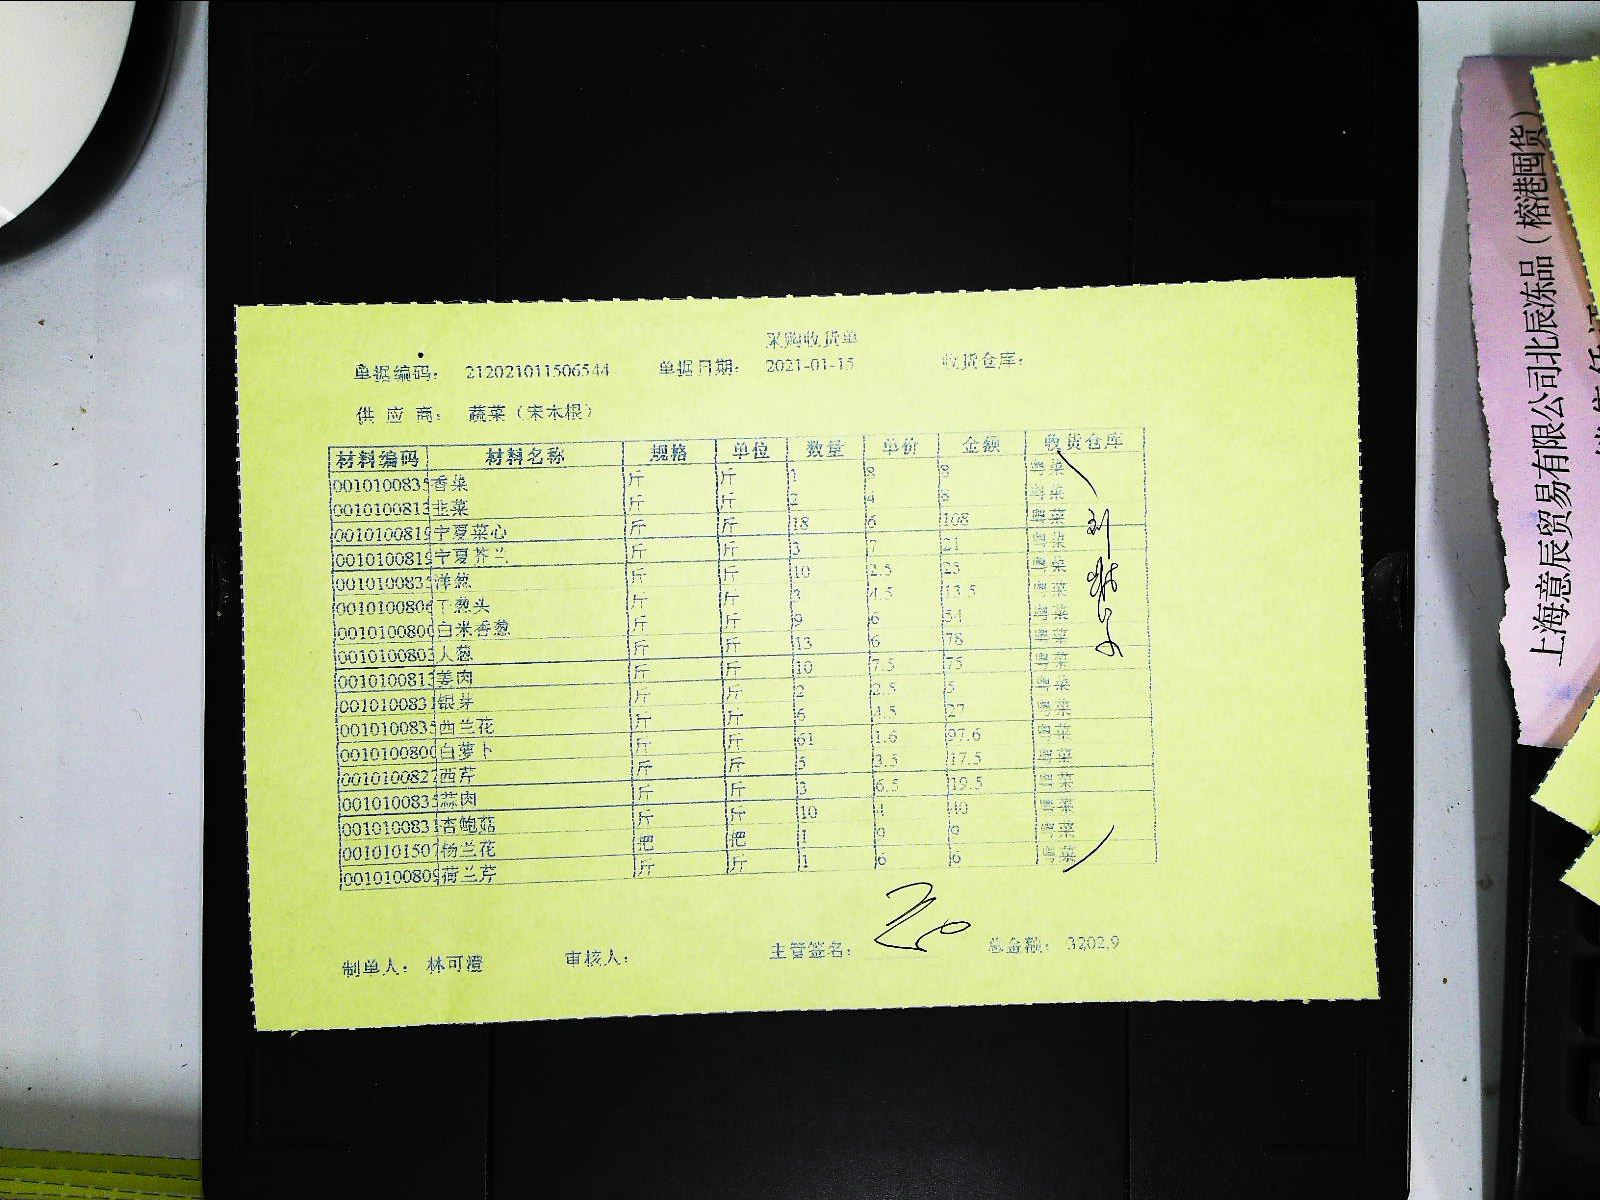 采购收货单
单据编码： 212021011506544 单据日期： 2021-01-15 收货仓库：
供 应 商： 蔬菜（宋木根）
材料编码 材料名称 规格 单位 数量 单价 金额 收货仓库
001010083 香菜 斤 斤 1 8 8 粤菜
0010100813 韭菜 斤 斤 2 4 8 粤菜
001010081 宁夏菜心 斤 斤 18 6 108 粤菜
001010081 宁夏芥兰 斤 斤 3 7 21 粤菜
001010083 洋葱 斤 斤 10 2.5 25 粤菜
001010080 干葱头 斤 斤 3 4.5 13.5 粤菜
001010080 白米香葱 斤 斤 9 6 54 粤菜
001010080 大葱 斤 斤 13 6 78 粤菜
001010081 姜肉 斤 斤 10 7.5 75 粤菜
001010083 银芽 斤 斤 2 2.5 5 粤菜
001010083 西兰花 斤 斤 6 4.5 27 粤菜
001010080 白萝卜 斤 斤 61 1.6 97.6 粤菜
001010082 西芹 斤 斤 5 3.5 17.5 粤菜
001010083 蒜肉 斤 斤 3 6.5 19.5 粤菜
001010083 杏鲍菇 斤 斤 10 4 40 粤菜
001010150 杨兰花 把 把 1 9 9 粤菜
001010080 荷兰芹 斤 斤 1 6 6 粤菜
制单人： 林可澄 审核人： 主管签名： 总金额： 3202.9
上海意辰贸易有限公司北辰冻品（榕港囤货）